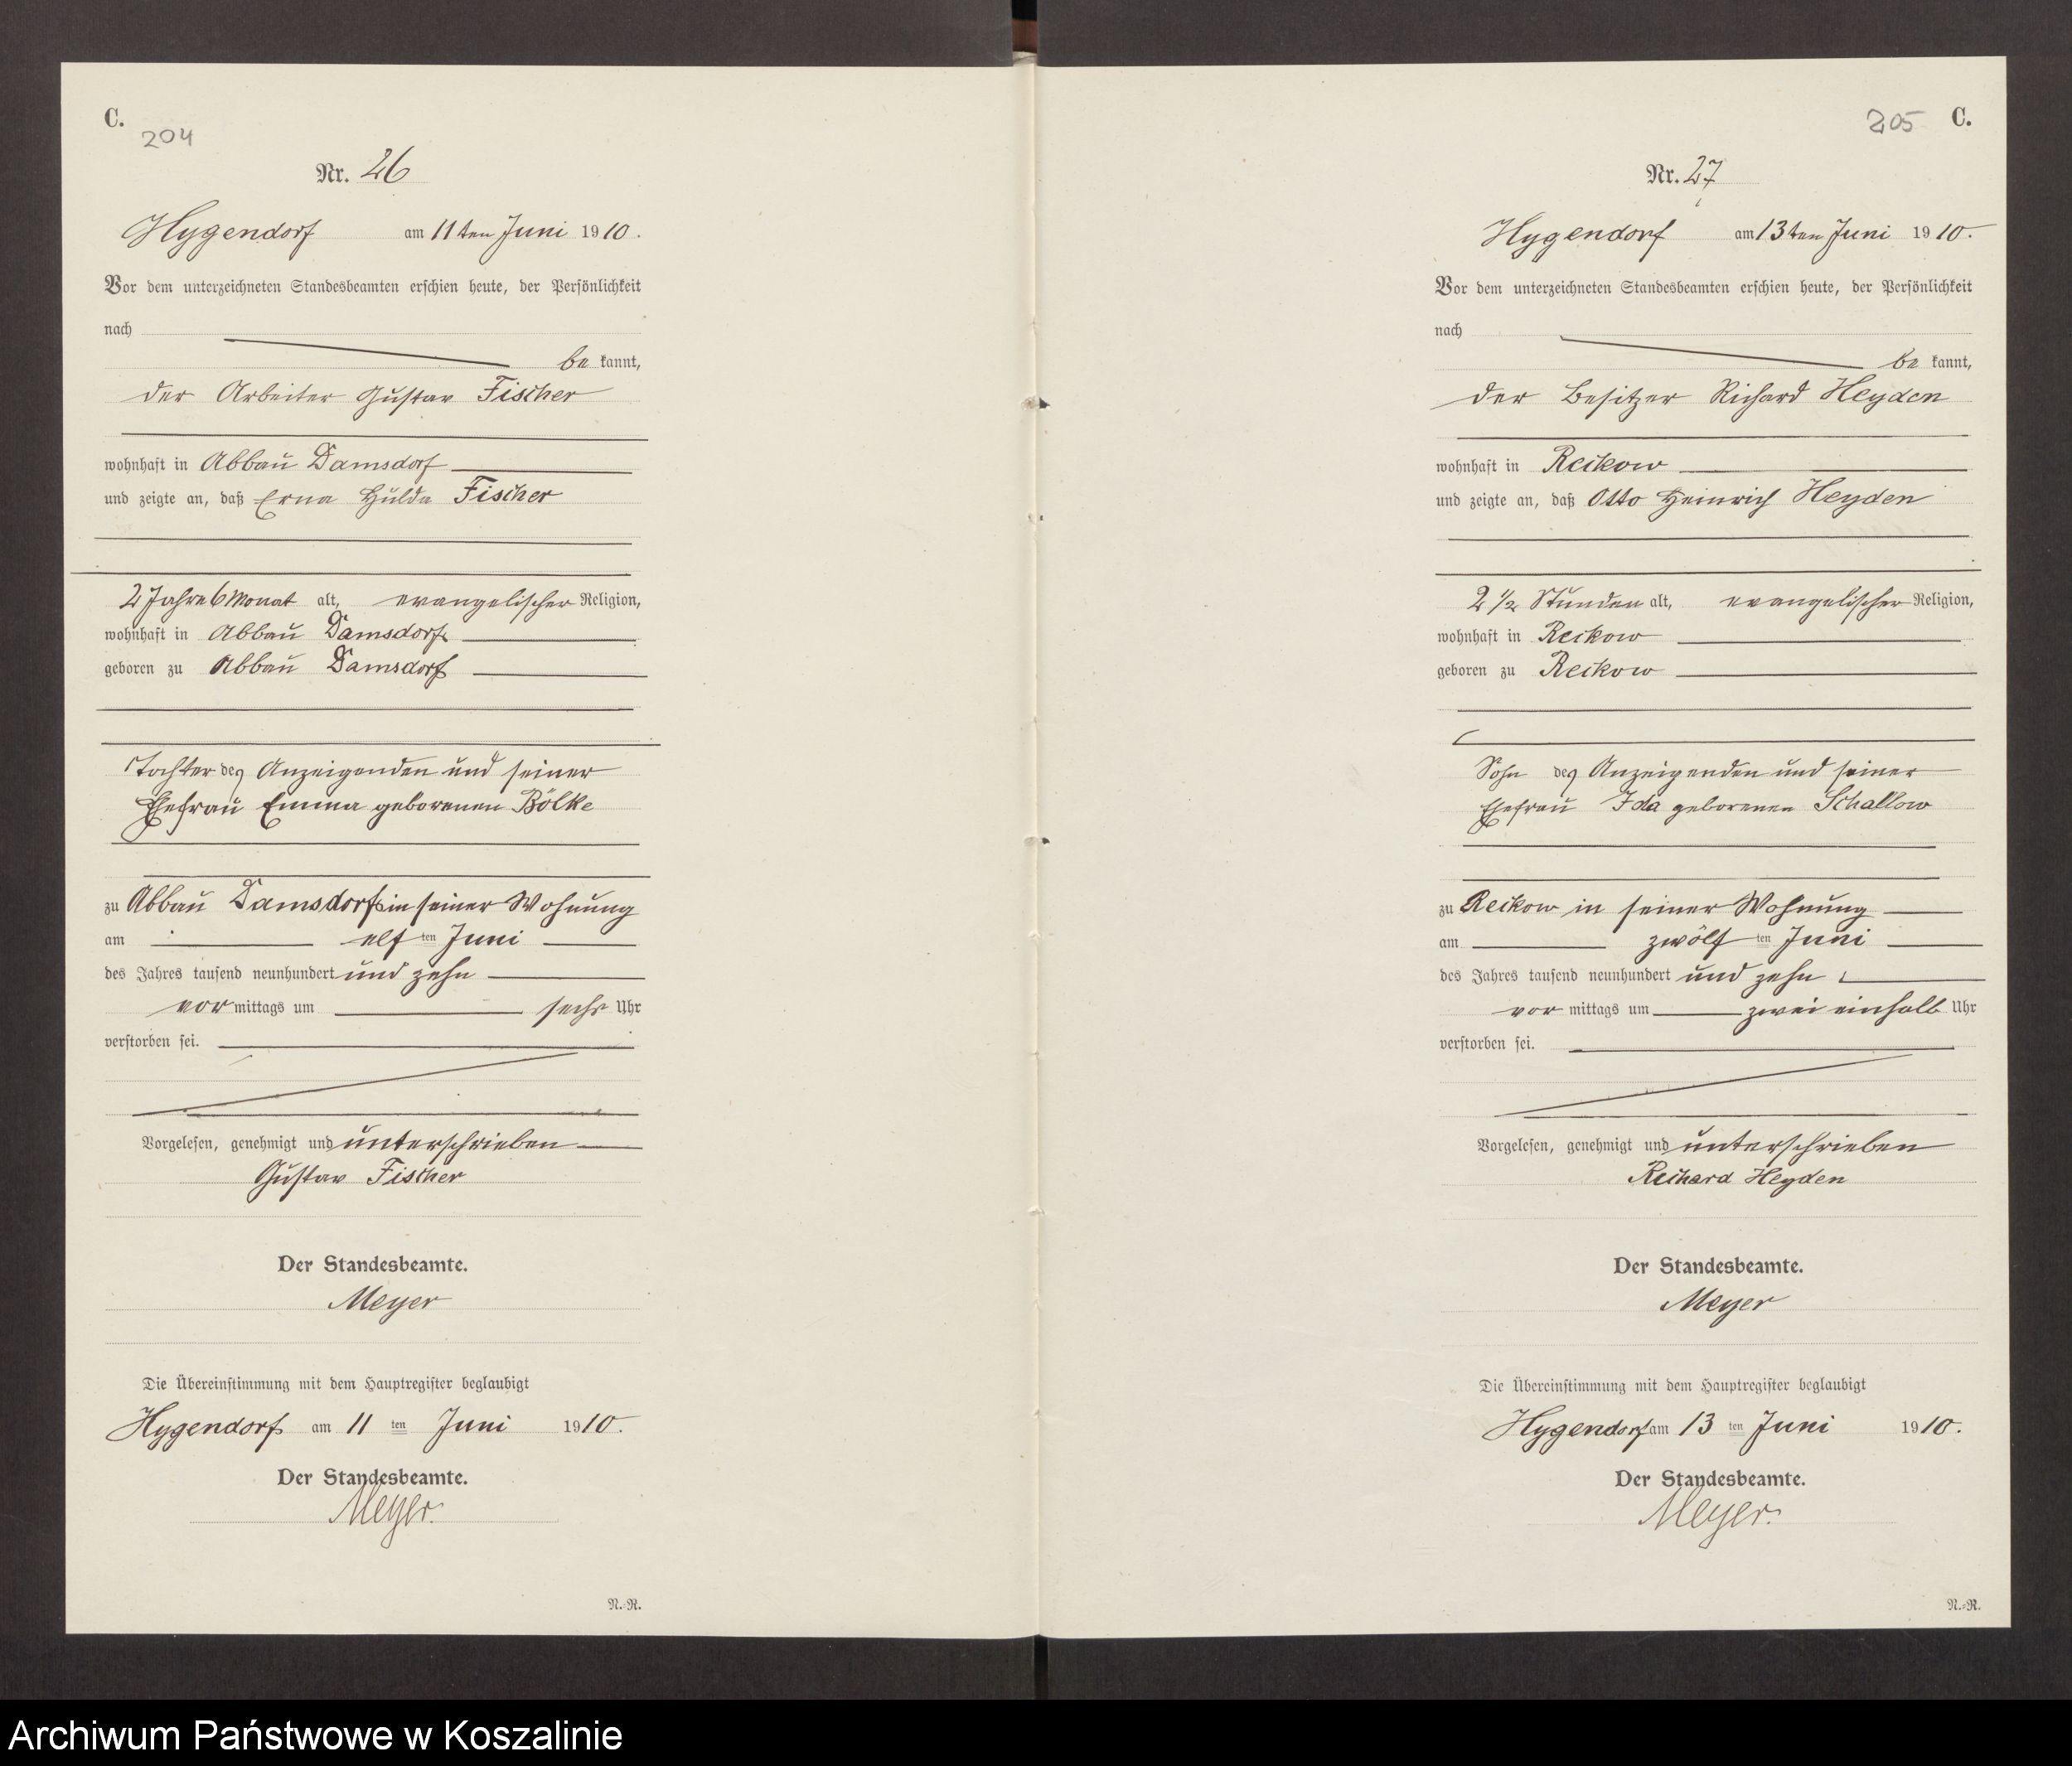 C.
204
Nr. 26
Hygendorf am 11ten Juni 1910.
Vor dem unterzeichneten Standesbeamten erschien heute, der Persönlichkeit
nach
bekannt,
der Arbeiter Gustav Fischer
wohnhaft in Abbau Damsdorf
und zeigte an, daß Erna Hulda Fischer
2 Jahre 6 Monat alt, evangelischer Religion,
wohnhaft in Abbau Damsdorf
geboren zu Abbau Damsdorf
Tochter des Anzeigenden und seiner
Ehefrau Emma geborenen Bölke
zu Abbau Damsdorf in seiner Wohnung
am elften Juni
des Jahres tausend neunhundert und zehn
vormittags um sechs Uhr
verstorben sei.
Vorgelesen, genehmigt und unterschrieben
Gustav Fischer
Der Standesbeamte.
Meyer
Die Übereinstimmung mit dem Hauptregister beglaubigt
Hygendorf am 11ten Juni 1910.
Der Standesbeamte.
Meyer.
N.-R.
205 C.
Nr. 27
Hygendorf am 13ten Juni 1910.
Vor dem unterzeichneten Standesbeamten erschien heute, der Persönlichkeit
nach
bekannt,
der Besitzer Richard Heyden
wohnhaft in Reikow
und zeigte an, daß Otto Heinrich Heyden
2 1/2 Stunden alt, evangelischer Religion,
wohnhaft in Reikow
geboren zu Reikow
Sohn des Anzeigenden und seiner
Ehefrau Ida geborenen Schallow
zu Reikow in seiner Wohnung
am zwölften Juni
des Jahres tausend neunhundert und zehn
vormittags um zwei einhalb Uhr
verstorben sei.
Vorgelesen, genehmigt und unterschrieben
Richard Heyden
Der Standesbeamte.
Meyer
Die Übereinstimmung mit dem Hauptregister beglaubigt
Hygendorf am 13ten Juni 1910.
Der Standesbeamte.
Meyer.
N.-R.
Archiwum Państwowe w Koszalinie